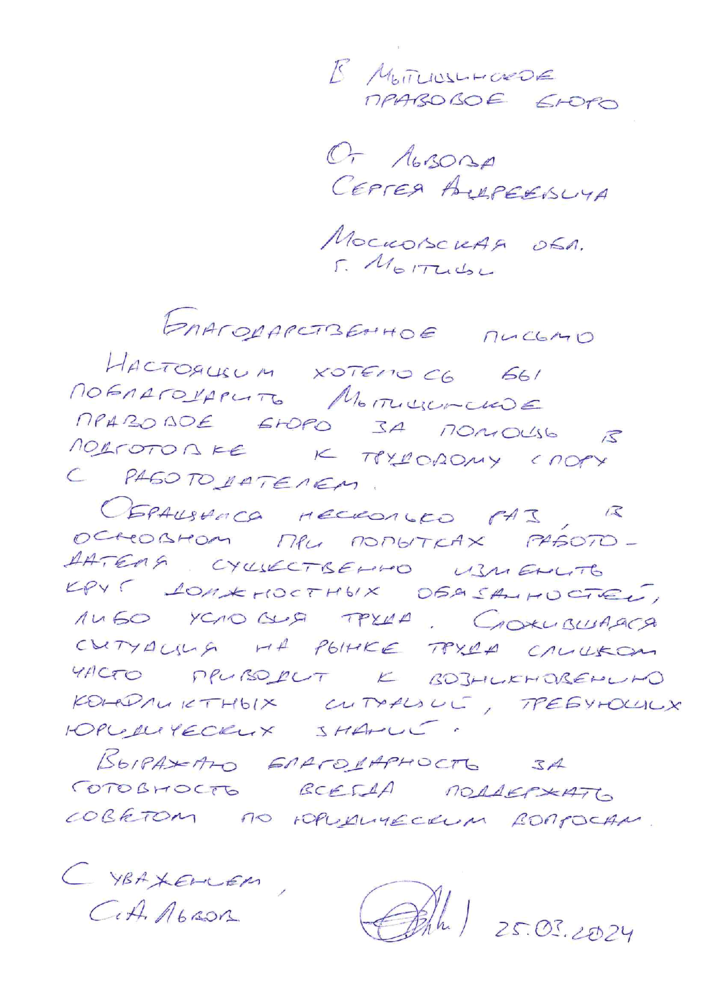 В Мытищинское
правовое бюро
От Львова
Сергея Андреевича
Московская обл.
г. Мытищи
Благодарственное письмо
Настоящим хотелось бы
поблагодарить Мытищинское
правовое бюро за помощь в
подготовке к трудовому спору
с работодателем.
Обращался несколько раз, в
основном при попытках работо-
дателя существенно изменить
круг должностных обязанностей,
либо условия труда. Сложившаяся
ситуация на рынке труда слишком
часто приводит к возникновению
конфликтных ситуаций, требующих
юридических знаний.
Выражаю благодарность за
готовность всегда поддержать
советом по юридическим вопросам.
С уважением,
С.А. Львов
25.03.2024